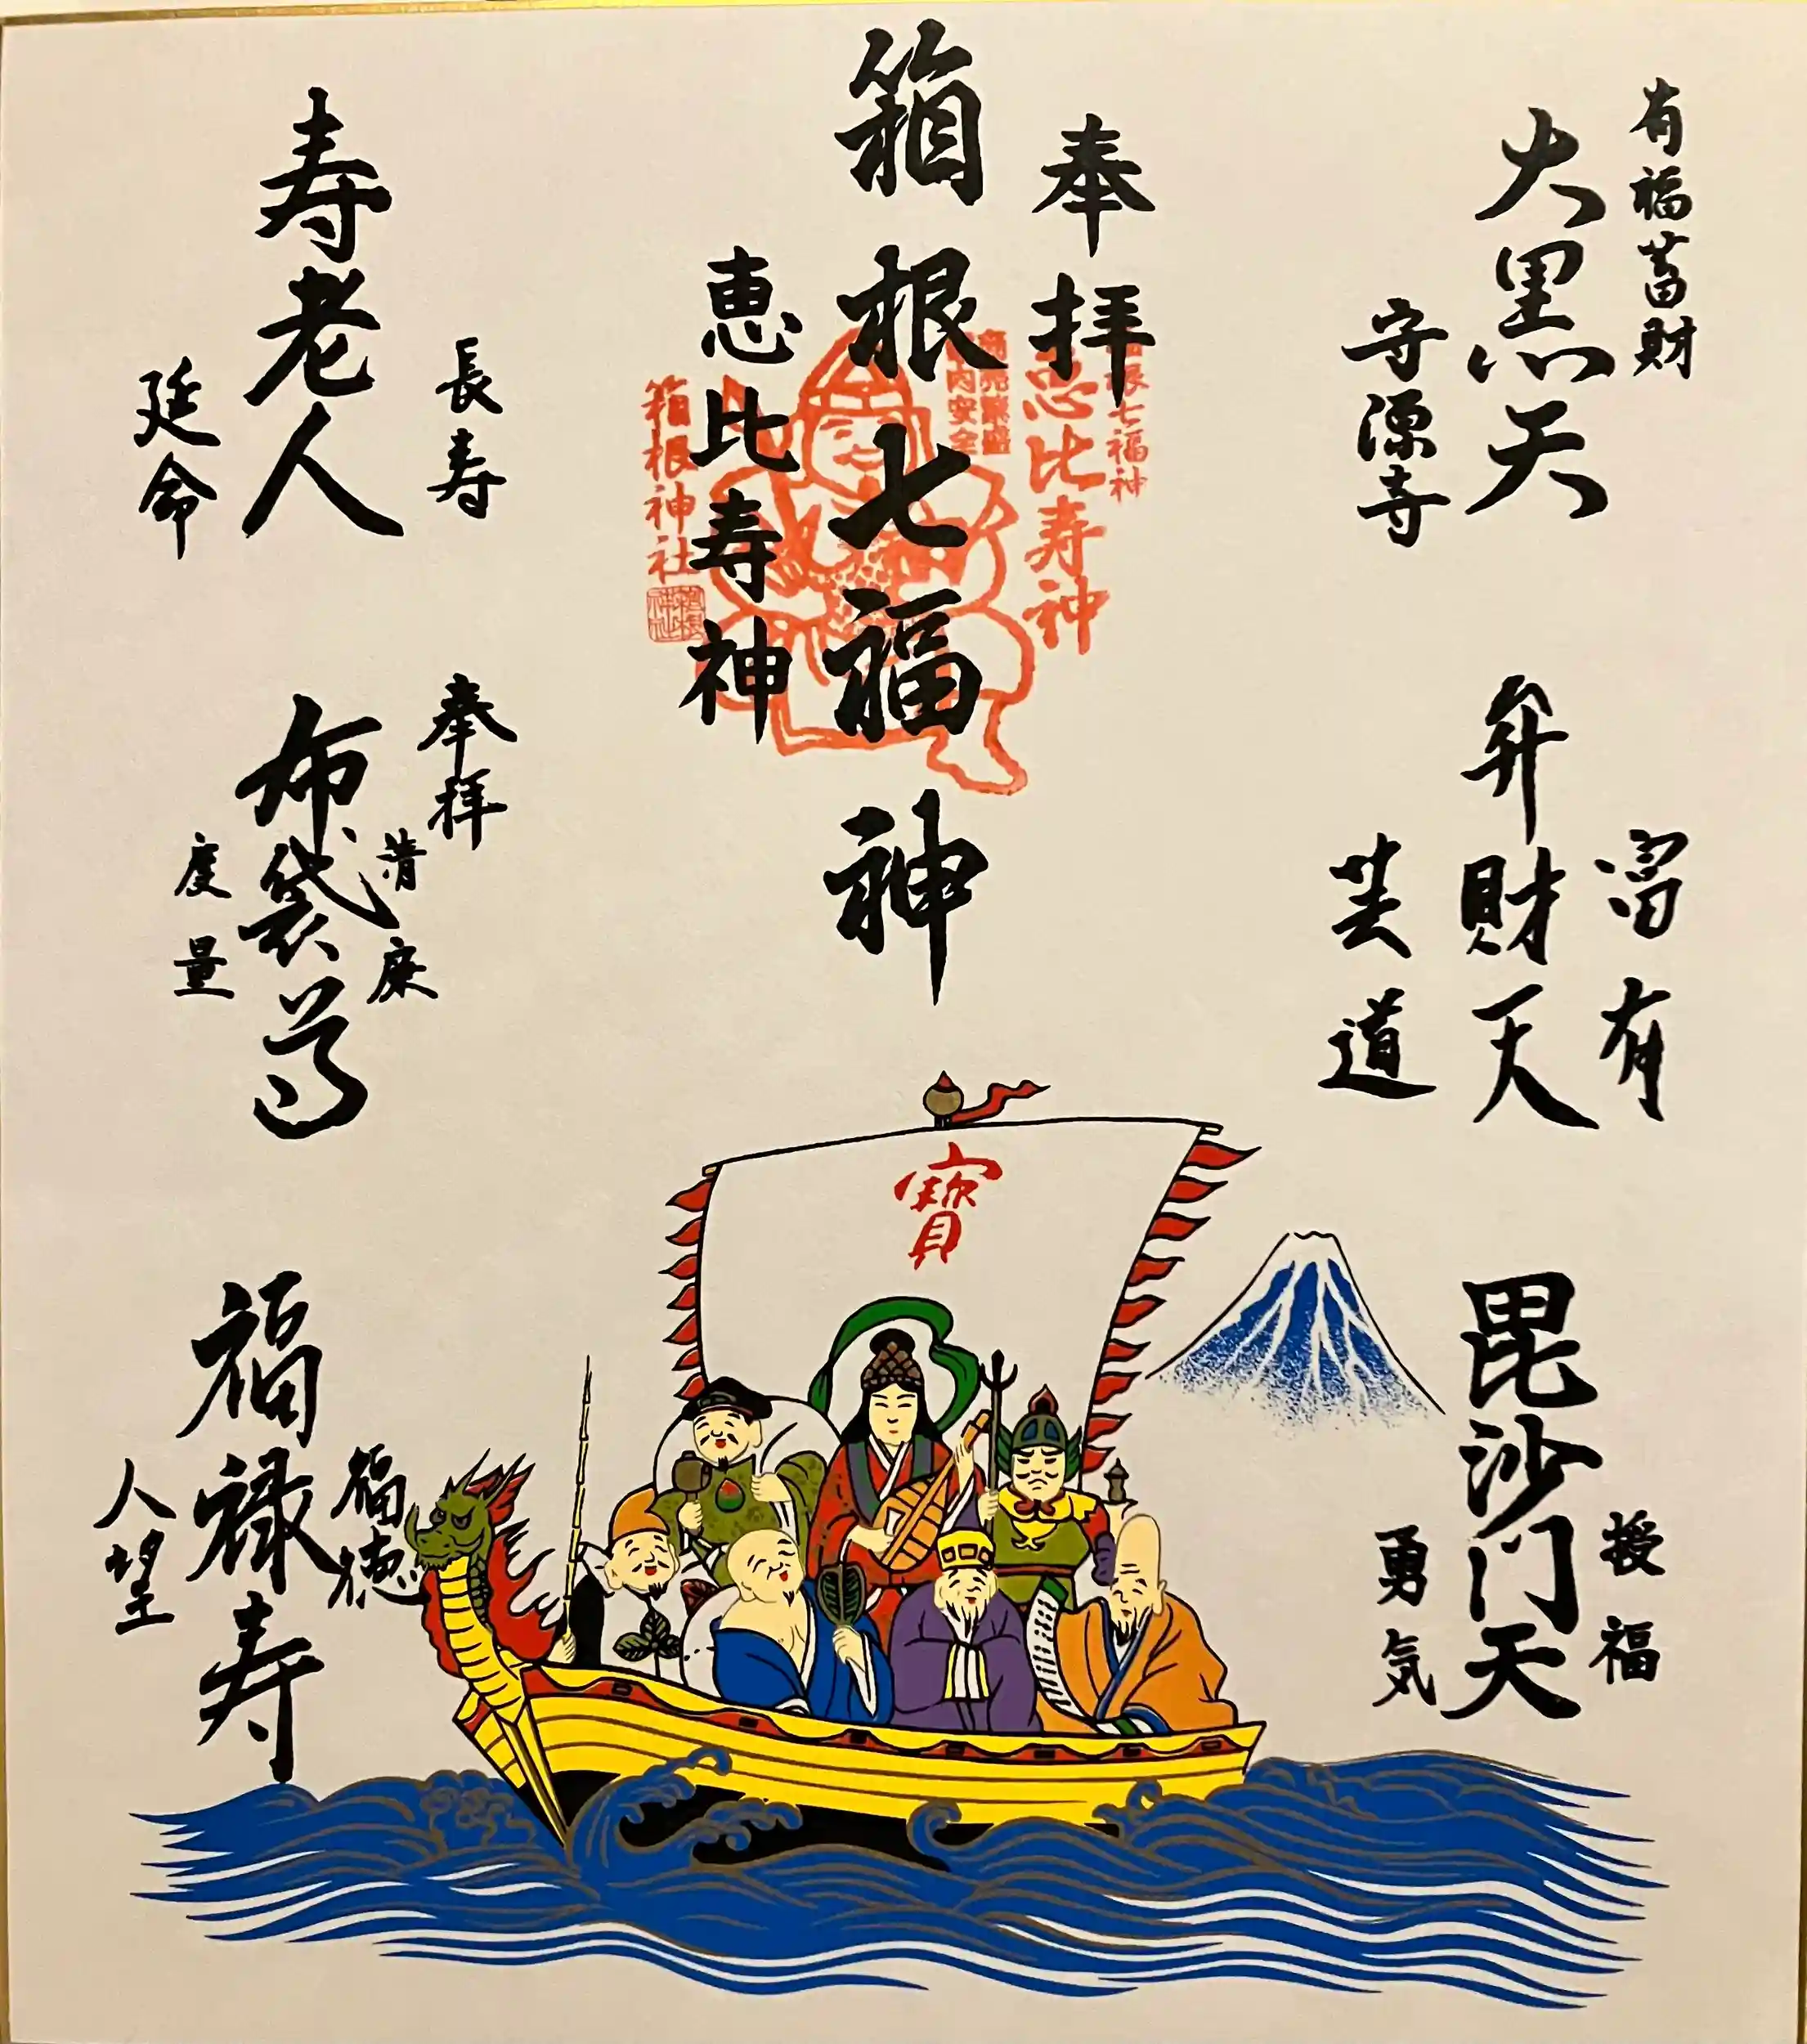 有福蓄財
大黒天
守源寺
富有
弁財天
芸道
授福
毘沙门天
勇気
奉拝
箱根七福神
恵比寿神
箱根七福神
恵比寿神
商売繁盛
家内安全
箱根神社
寶
長寿
寿老人
延命
奉拝
清廉
布袋尊
度量
福徳
福禄寿
人望